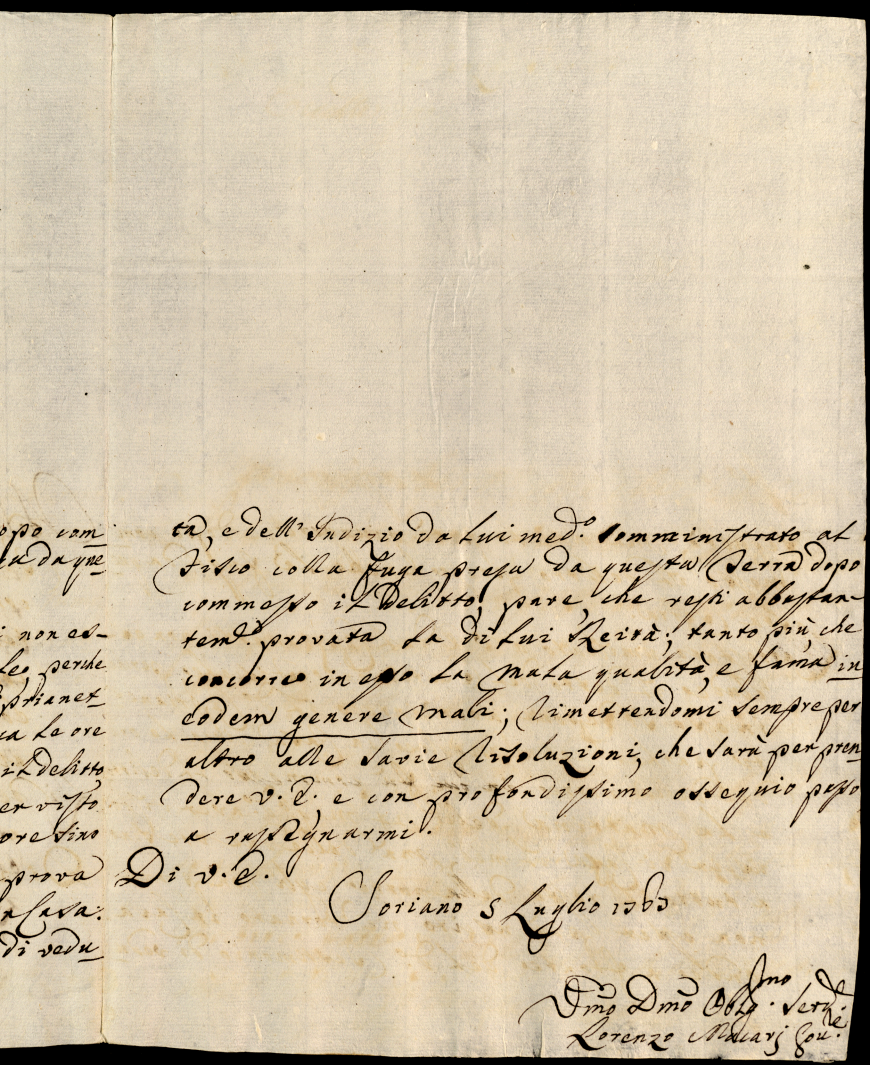 opo com
ca da que
i non es-
leo, perche
prianet
ca le ore
il delitto,
er visto
ore sino
prova
n Casa.
di vedu
tà, e dell'Indizio da lui med.º somministrato al
Fisco colla Fuga presa da questa Terra dopo
commesso il delitto, pare, che resti abbastan-
tem.e provata la di lui Reità; tanto più, che
concorre in esso la mala qualità, e fama in
eodem genere mali; rimettendomi sempre per
altro alle savie risoluzioni, che sarà per pren
dere V. E. e con profondissimo ossequio passo
a rassegnarmi.
Di V. E.
Soriano 5 Luglio 1763
Vmo Dmo Obblig.mo Ser.e
Lorenzo Macarj Gov.e